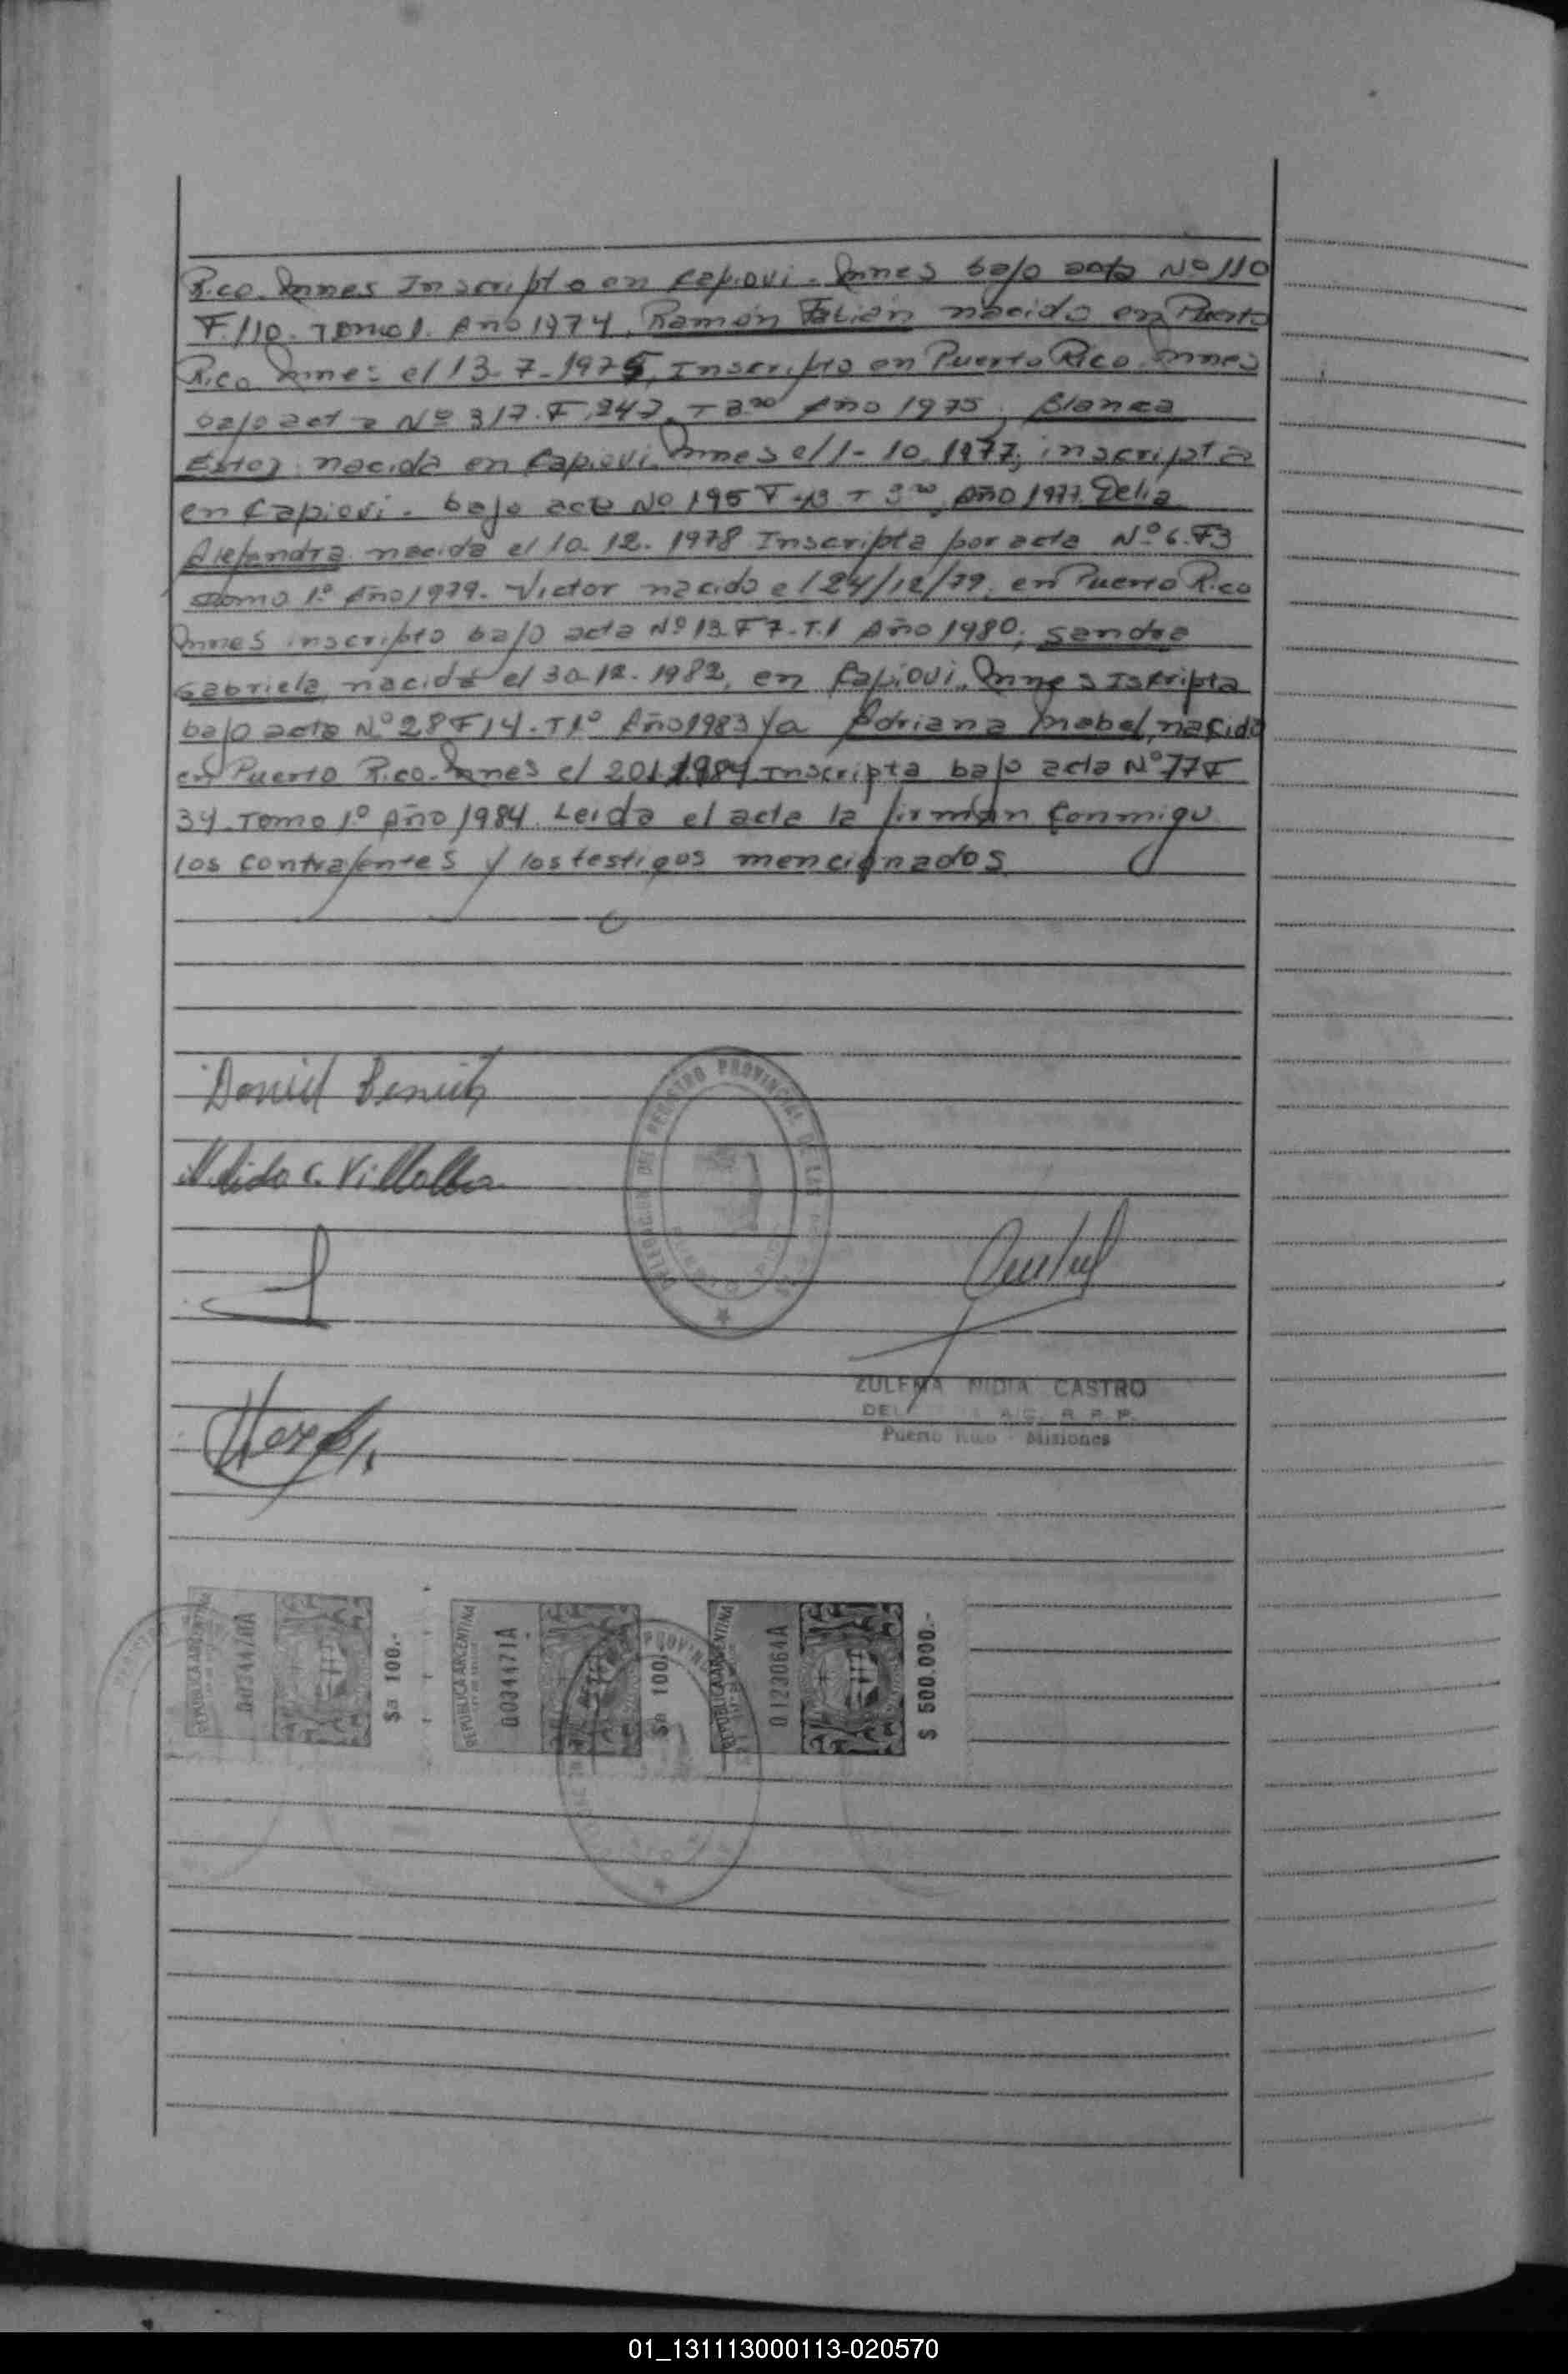 Rico. Mnnes Inscripto en Capiovi. Mnnes bajo acta Nº 110
F. 110. Tomo 1. Año 1974, Ramón Fabián nacido en Puerto
Rico Mnnes el 13-7-1975, Inscripto en Puerto Rico. Mnnes
bajo acta Nº 317. F. 247. T 3ro Año 1975; Blanca
Ester nacida en Capiovi. Mnnes el 1-10.1977; inscripta
en Capiovi. bajo acta Nº 195 F T 3ro, Año 1977. Delia
Alejandra nacida el 10. 12. 1978 Inscripta por acta Nº 6. F3
Tomo 1º Año 1979. Victor nacido el 24/12/79, en Puerto Rico
Mnnes inscripto bajo acta Nº 13. F 7. T.1 Año 1980; Sandra
Gabriela, nacida el 30-12-1982, en Capiovi, Mnnes Iskripta
bajo acta Nº 28 F 14. T 1º Año 1983 y a Adriana Mabel, nacida
en Puerto Rico. Mnnes el 20.1.1984 Inscripta bajo acta Nº 77 F
34. Tomo 1º Año 1984. Leida el acta la firman conmigo
los contrayentes y los testigos mencionados
Daniel Benitz
Nelida c. Villalba
DELEGACION DEL REGISTRO PROVINCIAL DE LAS
ZULEMA NIDIA CASTRO
DEL R. P. P.
Puerto Rico - Misiones
REPUBLICA ARGENTINA
0034470A
$a 100.-
REPUBLICA ARGENTINA
0034471A
$a 100.-
REPUBLICA ARGENTINA
0123064A
$ 500.000.-
01_131113000113-020570